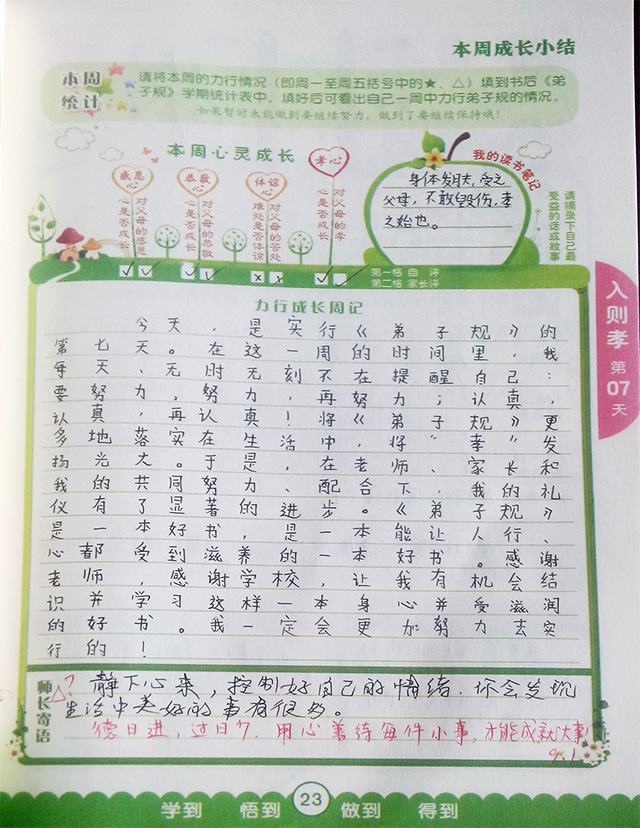 本周成长小结
本周
统计
请将本周的力行情况（即周一至周五括号中的★、△）填到书后《弟
子规》学期统计表中。填好后可看出自己一周中力行弟子规的情况。
如果暂时未能做到要继续努力，做到了要继续保持哦！
本周心灵成长
感恩心
对父母的感恩
心是否成长
恭敬心
对父母的恭敬
心是否成长
体谅心
对父母的苦处
难处是否体谅
孝心
对父母的孝
心是否成长
第一格 自 评
第二格 家长评
我的读书笔记
身体发肤，受之
父母，不敢毁伤，孝
之始也。
请摘录下自己最
受益的话或故事
入则孝 第07天
力行成长周记
今天，是实行《弟子规》的
第七天。在这一周的时间里，我
每天、无时无刻不在提醒自己：
要努力，努力，再努力；认真，
认真，再认真！将《弟子规》更
多地落实在生活中，将“孝”发
扬光大。于是，在老师、家长和
我的共同努力、配合下，我的礼
仪有了显著的进步。《弟子规》
是一本好书，是一本能让人行、
心都受到滋养的一本好书。感谢
老师，感谢学校，让我有机会结
识并学习这样一本身心并受滋润
的好书。我一定会更加努力去实
行的！
师长寄语
静下心来，控制好自己的情绪.你会发现
生活中美好的事有很多。
德日进，过日少.用心善待每件小事，才能成就大事！
9.1
学到 悟到 23 做到 得到